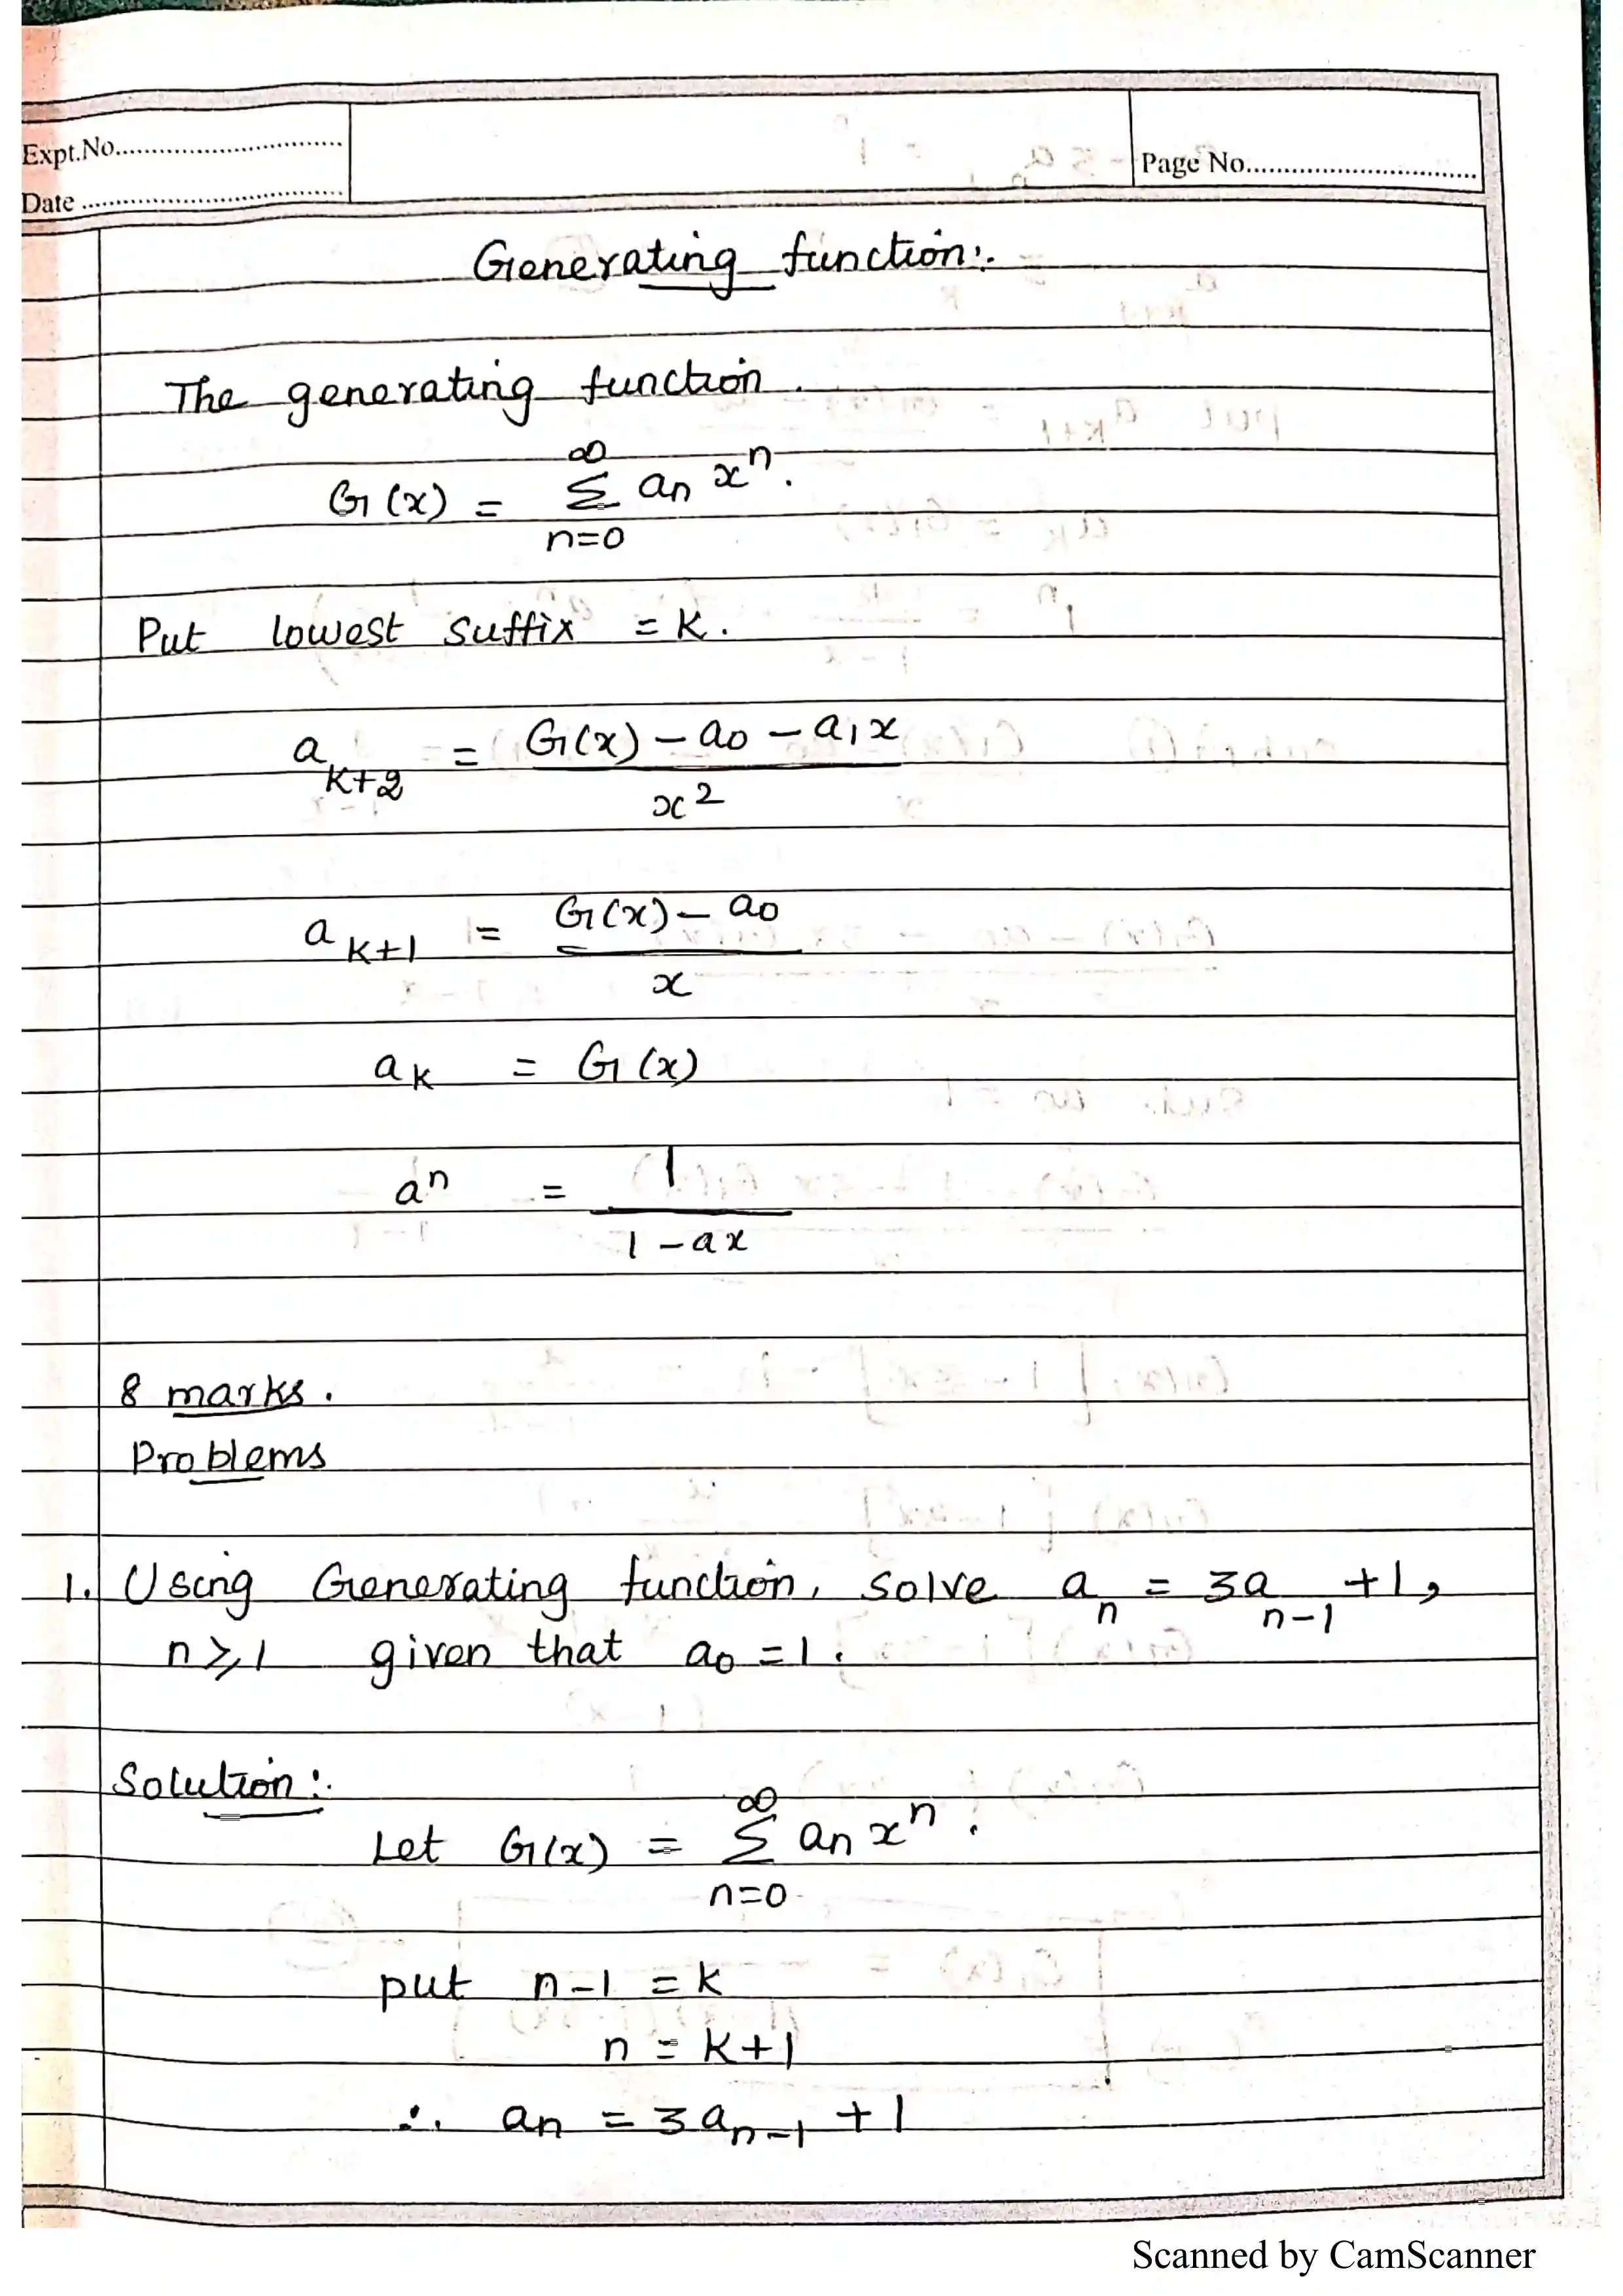 Expt.No..............................
Date ..................................
Page No..............................
Generating function:.
The generating function.
G(x) = ∞ Σ n=0 aₙ xⁿ.
Put lowest suffix = k.
a k+2 = G(x) – a₀ – a₁x / x²
a k+1 = G(x) – a₀ / x
aₖ = G(x)
aⁿ = 1 / 1 – ax
8 marks.
Problems
1. Using Generating function, solve aₙ = 3aₙ₋₁ + 1,
n ≥ 1 given that a₀ = 1.
Solution:.
Let G(x) = ∞ Σ n=0 aₙ xⁿ.
put n–1 = k
n = k+1
∴ aₙ = 3aₙ₋₁ + 1
Scanned by CamScanner